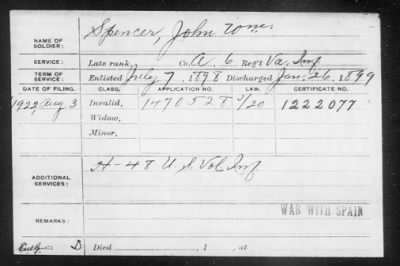 NAME OF SOLDIER: Spencer, John Wm.
SERVICE: Late rank, Co. A, 6 Reg't Va. Inf
TERM OF SERVICE: Enlisted July 7, 1898 Discharged Jan. 26, 1899
DATE OF FILING. CLASS. APPLICATION NO. LAW. CERTIFICATE NO.
1922, Aug 3 Invalid, 1470528 1222077
Widow,
Minor,
ADDITIONAL SERVICES: H-48 U.S. Vol Inf
WAR WITH SPAIN
REMARKS:
D Died , 1 , at